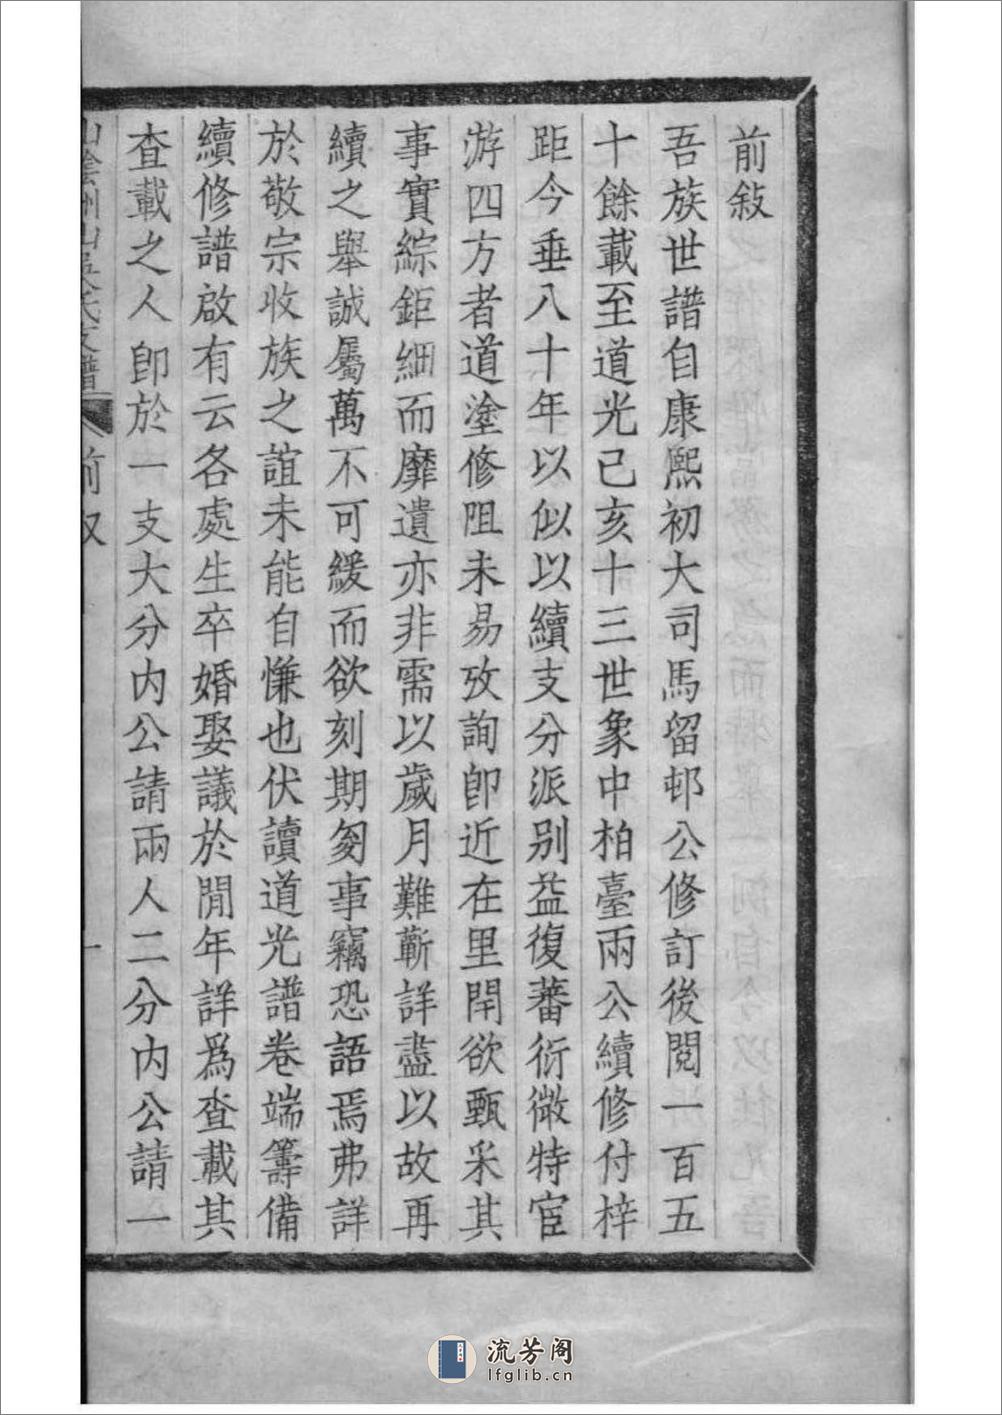 前敍
吾族世譜自康熙初大司馬留邨公修訂後閱一百五
十餘載至道光己亥十三世象中柏臺兩公續修付梓
距今垂八十年以似以續支分派别益復蕃衍微特宦
游四方者道塗修阻未易攷詢卽近在里閈欲甄采其
事實綜鉅細而靡遺亦非需以歲月難蘄詳盡以故再
續之舉誠屬萬不可緩而欲刻期匆事竊恐語焉弗詳
於敬宗收族之誼未能自慊也伏讀道光譜卷端籌備
續修譜啟有云各處生卒婚娶議於閒年詳爲查載其
查載之人卽於一支大分内公請兩人二分内公請一
山陰州山吳氏支譜 前敍 一
流芳阁
lfglib.cn